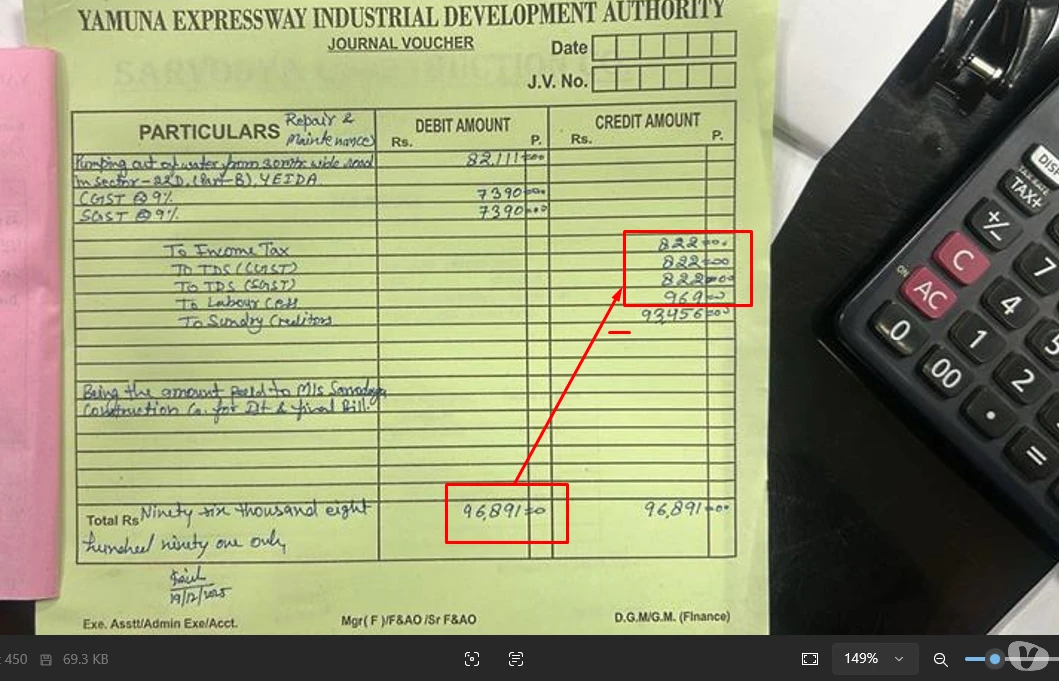 YAMUNA EXPRESSWAY INDUSTRIAL DEVELOPMENT AUTHORITY
JOURNAL VOUCHER
Date
J.V. No.
PARTICULARS Repair & Maintenance)
DEBIT AMOUNT
Rs. P.
CREDIT AMOUNT
Rs. P.
Pumping out of water from 30 mtr wide road 82,111=00
in Sector-22D, (Part-B), YEIDA
CGST @ 9% 7390=00
SGST @ 9% 7390=00
To Income Tax 822=00
To TDS (CGST) 822=00
To TDS (SGST) 822=00
To Labour Cess 969=00
To Sundry Creditors 93,456=00
Being the amount paid to M/s Sarvodaya
Construction Co. for & final Bill.
Total Rs Ninety six thousand eight 96,891=00 96,891=00
hundred ninety one only
19/12/2025
Exe. Asstt/Admin Exe/Acct.
Mgr( F )/F&AO /Sr F&AO
D.G.M/G.M. (Finance)
DISP
TAX RATE
TAX+
+/−
C
7
ON
AC
4
0
1
5
00
2
.
=
450
69.3 KB
149%